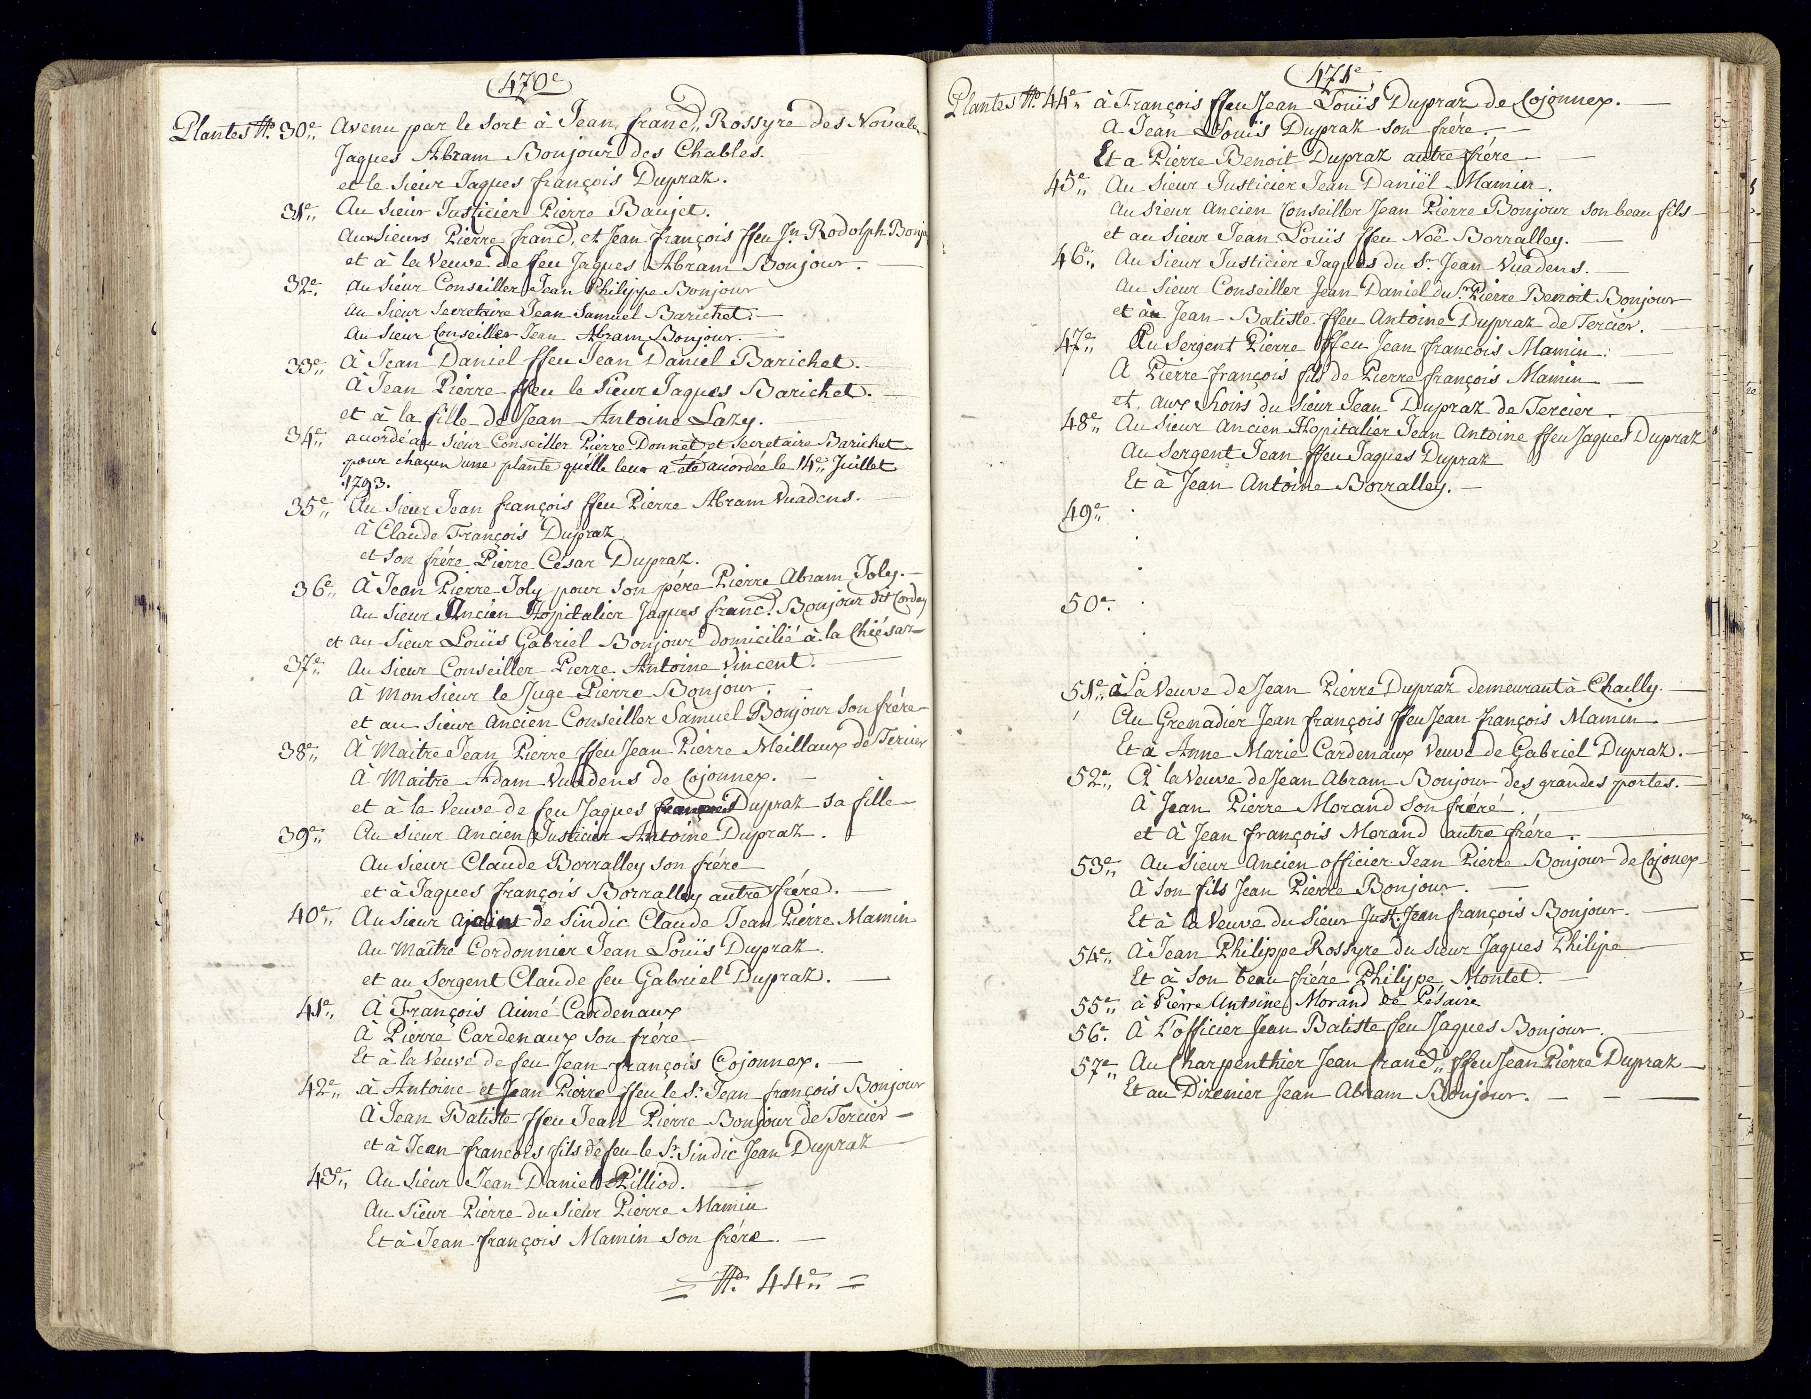 470e
Plantes No. 30e.. Avenu par le sort à Jean francd.. Rossyre des Novale
Jaques Abram Bonjour des Chables.
et le Sieur Jaques françois Dupraz.
31e.. Au Sieur Justicier Pierre Baujet.
Aux Sieurs Pierre francd. et Jean françois ffeu Jn. Rodolph Bonjo
et à la Veuve de feu Jaques Abram Bonjour. —
32e. au Sieur Conseiller Jean Philippe Bonjour
au Sieur Secretaire Jean Samuel Barichet. —
au Sieur Conseiller Jean Abram Bonjour. —
33e.. À Jean Daniel ffeu Jean Daniel Barichet. —
À Jean Pierre ffeu le Sieur Jaques Barichet. —
et à la fille de Jean Antoine Lazy.
34e.. acordé au Sieur Conseiller Pierre Donnet et Secretaire Barichet
pour chaqun une plante qu'elle leur a été acordée le 14e.. Juillet
1793.
35e.. Au Sieur Jean françois ffeu Pierre Abram Vuadens. —
à Claude François Dupraz
et son frére Pierre César Dupraz.
36e.. À Jean Pierre Joly pour son pére Pierre Abram Joly. —
au Sieur Ancien Hopitalier Jaques francd. Bonjour dit Corday
et au Sieur Louïs Gabriel Bonjour domicilié à la Chiésaz —
37e.. au Sieur Conseiller Pierre Antoine Vincent. —
à Monsieur le Juge Pierre Bonjour. —
et au Sieur ancien Conseiller Samuel Bonjour son frére —
38e.. À Maitre Jean Pierre ffeu Jean Pierre Meillaux de Tercier
À Maitre Adam Vuadens de Cojonnex. —
et à la Veuve de feu Jaques Dupraz sa fille —
39e.. Au Sieur Ancien Justicier Antoine Dupraz.
Au Sieur Claude Borralley son frére —
et à Jaques françois Borralley autre frére. —
40e.. Au Sieur ajoint de Sindic Claude Jean Pierre Mamin
Au Maître Cordonnier Jean Louïs Dupraz.
et au Sergent Claude feu Gabriel Dupraz. —
41e.. À François Aimé Cardenaux
À Pierre Cardenaux son frére —
Et à la Veuve de feu Jean françois Cojonnex. —
42e.. à Antoine et Jean Pierre ffeu le Sr. Jean françois Bonjour
À Jean Batiste ffeu Jean Pierre Bonjour de Tercier —
et à Jean francois fils de feu le Sr. Sindic Jean Dupraz —
43e.. Au Sieur Jean Daniel Pilliod. —
Au Sieur Pierre du Sieur Pierre Mamin
Et à Jean françois Mamin son frére. —
= No. 44e.. =
471e
Plantes No. 44e.. à François ffeu Jean Louïs Dupraz de Cojonnex. —
A Jean Louïs Dupraz son frére. —
Et a Pierre Benoit Dupraz autre frére —
45e.. Au Sieur Justicier Jean Daniël Mamin.
Au Sieur ancien Conseiller Jean Pierre Bonjour son beau fils —
et au Sieur Jean Louïs ffeu Noê Borralley. —
46e.. Au Sieur Justicier Jaques du Sr. Jean Vuadens. —
Au Sieur Conseiller Jean Daniel du Sr. Pierre Benoit Bonjour
et à Jean Batiste ffeu Antoine Dupraz de Tercier. —
47e.. Au Sergent Pierre ffeu Jean françois Mamin. —
A Pierre françois fils de Pierre françois Mamin —
et aux hoirs du Sieur Jean Dupraz de Tercier. —
48e.. Au Sieur ancien Hopitalier Jean Antoine ffeu Jaques Dupraz
Au Sergent Jean ffeu Jaques Dupraz
Et à Jean Antoine Borralley. —
49e..
50e.
51e.. à La Veuve de Jean Pierre Dupraz demeurant à Chailly. —
Au Grenadier Jean françois ffeu Jean françois Mamin —
Et à Anne Marie Cardenaux Veuve de Gabriel Dupraz. —
52e.. À la Veuve de Jean Abram Bonjour des grandes portes. —
À Jean Pierre Morand son frére —
et à Jean françois Morand autre frére. —
53e.. Au Sieur Ancien officier Jean Pierre Bonjour de Cojonex
À son fils Jean Pierre Bonjour. —
Et à la Veuve du Sieur Just. Jean françois Bonjour. —
54e.. À Jean Philippe Rossyre du Sieur Jaques Philipe —
Et à son beau frére Philippe Montet. —
55e.. à Pierre Antoine Morand de Pésaire
56e. À l'officier Jean Batiste feu Jaques Bonjour.
57e.. Au Charpenthier Jean francd.. ffeu Jean Pierre Dupraz —
Et au Dizenier Jean Abram Bonjour. — — —